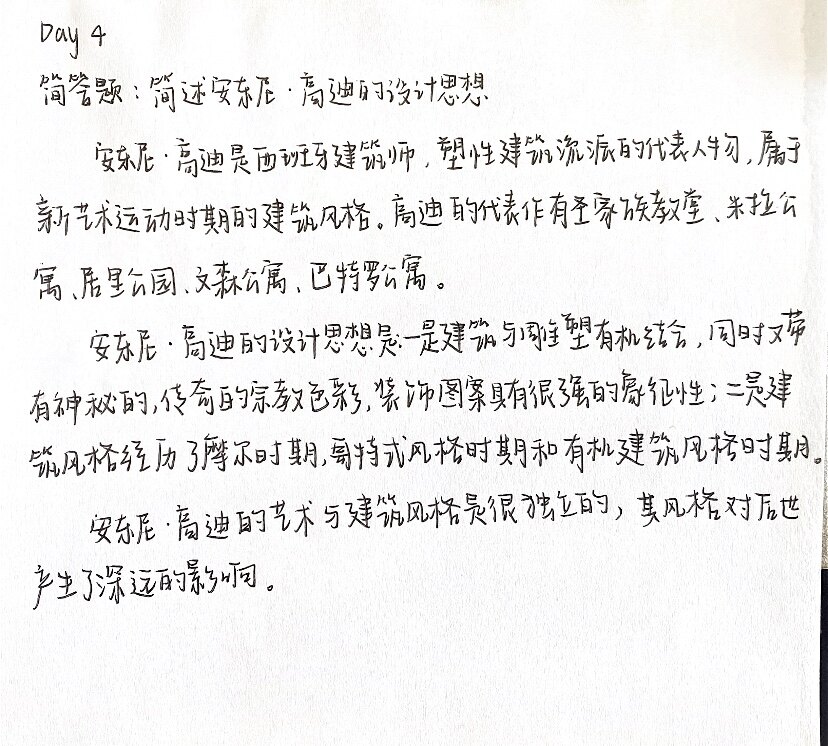 Day 4
简答题：简述安东尼·高迪的设计思想
安东尼·高迪是西班牙建筑师，塑性建筑流派的代表人物，属于
新艺术运动时期的建筑风格。高迪的代表作有圣家族教堂、米拉公
寓、居里公园、文森公寓、巴特罗公寓。
安东尼·高迪的设计思想是：一是建筑与雕塑有机结合，同时又带
有神秘的，传奇的宗教色彩，装饰图案具有很强的象征性；二是建
筑风格经历了摩尔时期，哥特式风格时期和有机建筑风格时期。
安东尼·高迪的艺术与建筑风格是很独立的，其风格对后世
产生了深远的影响。